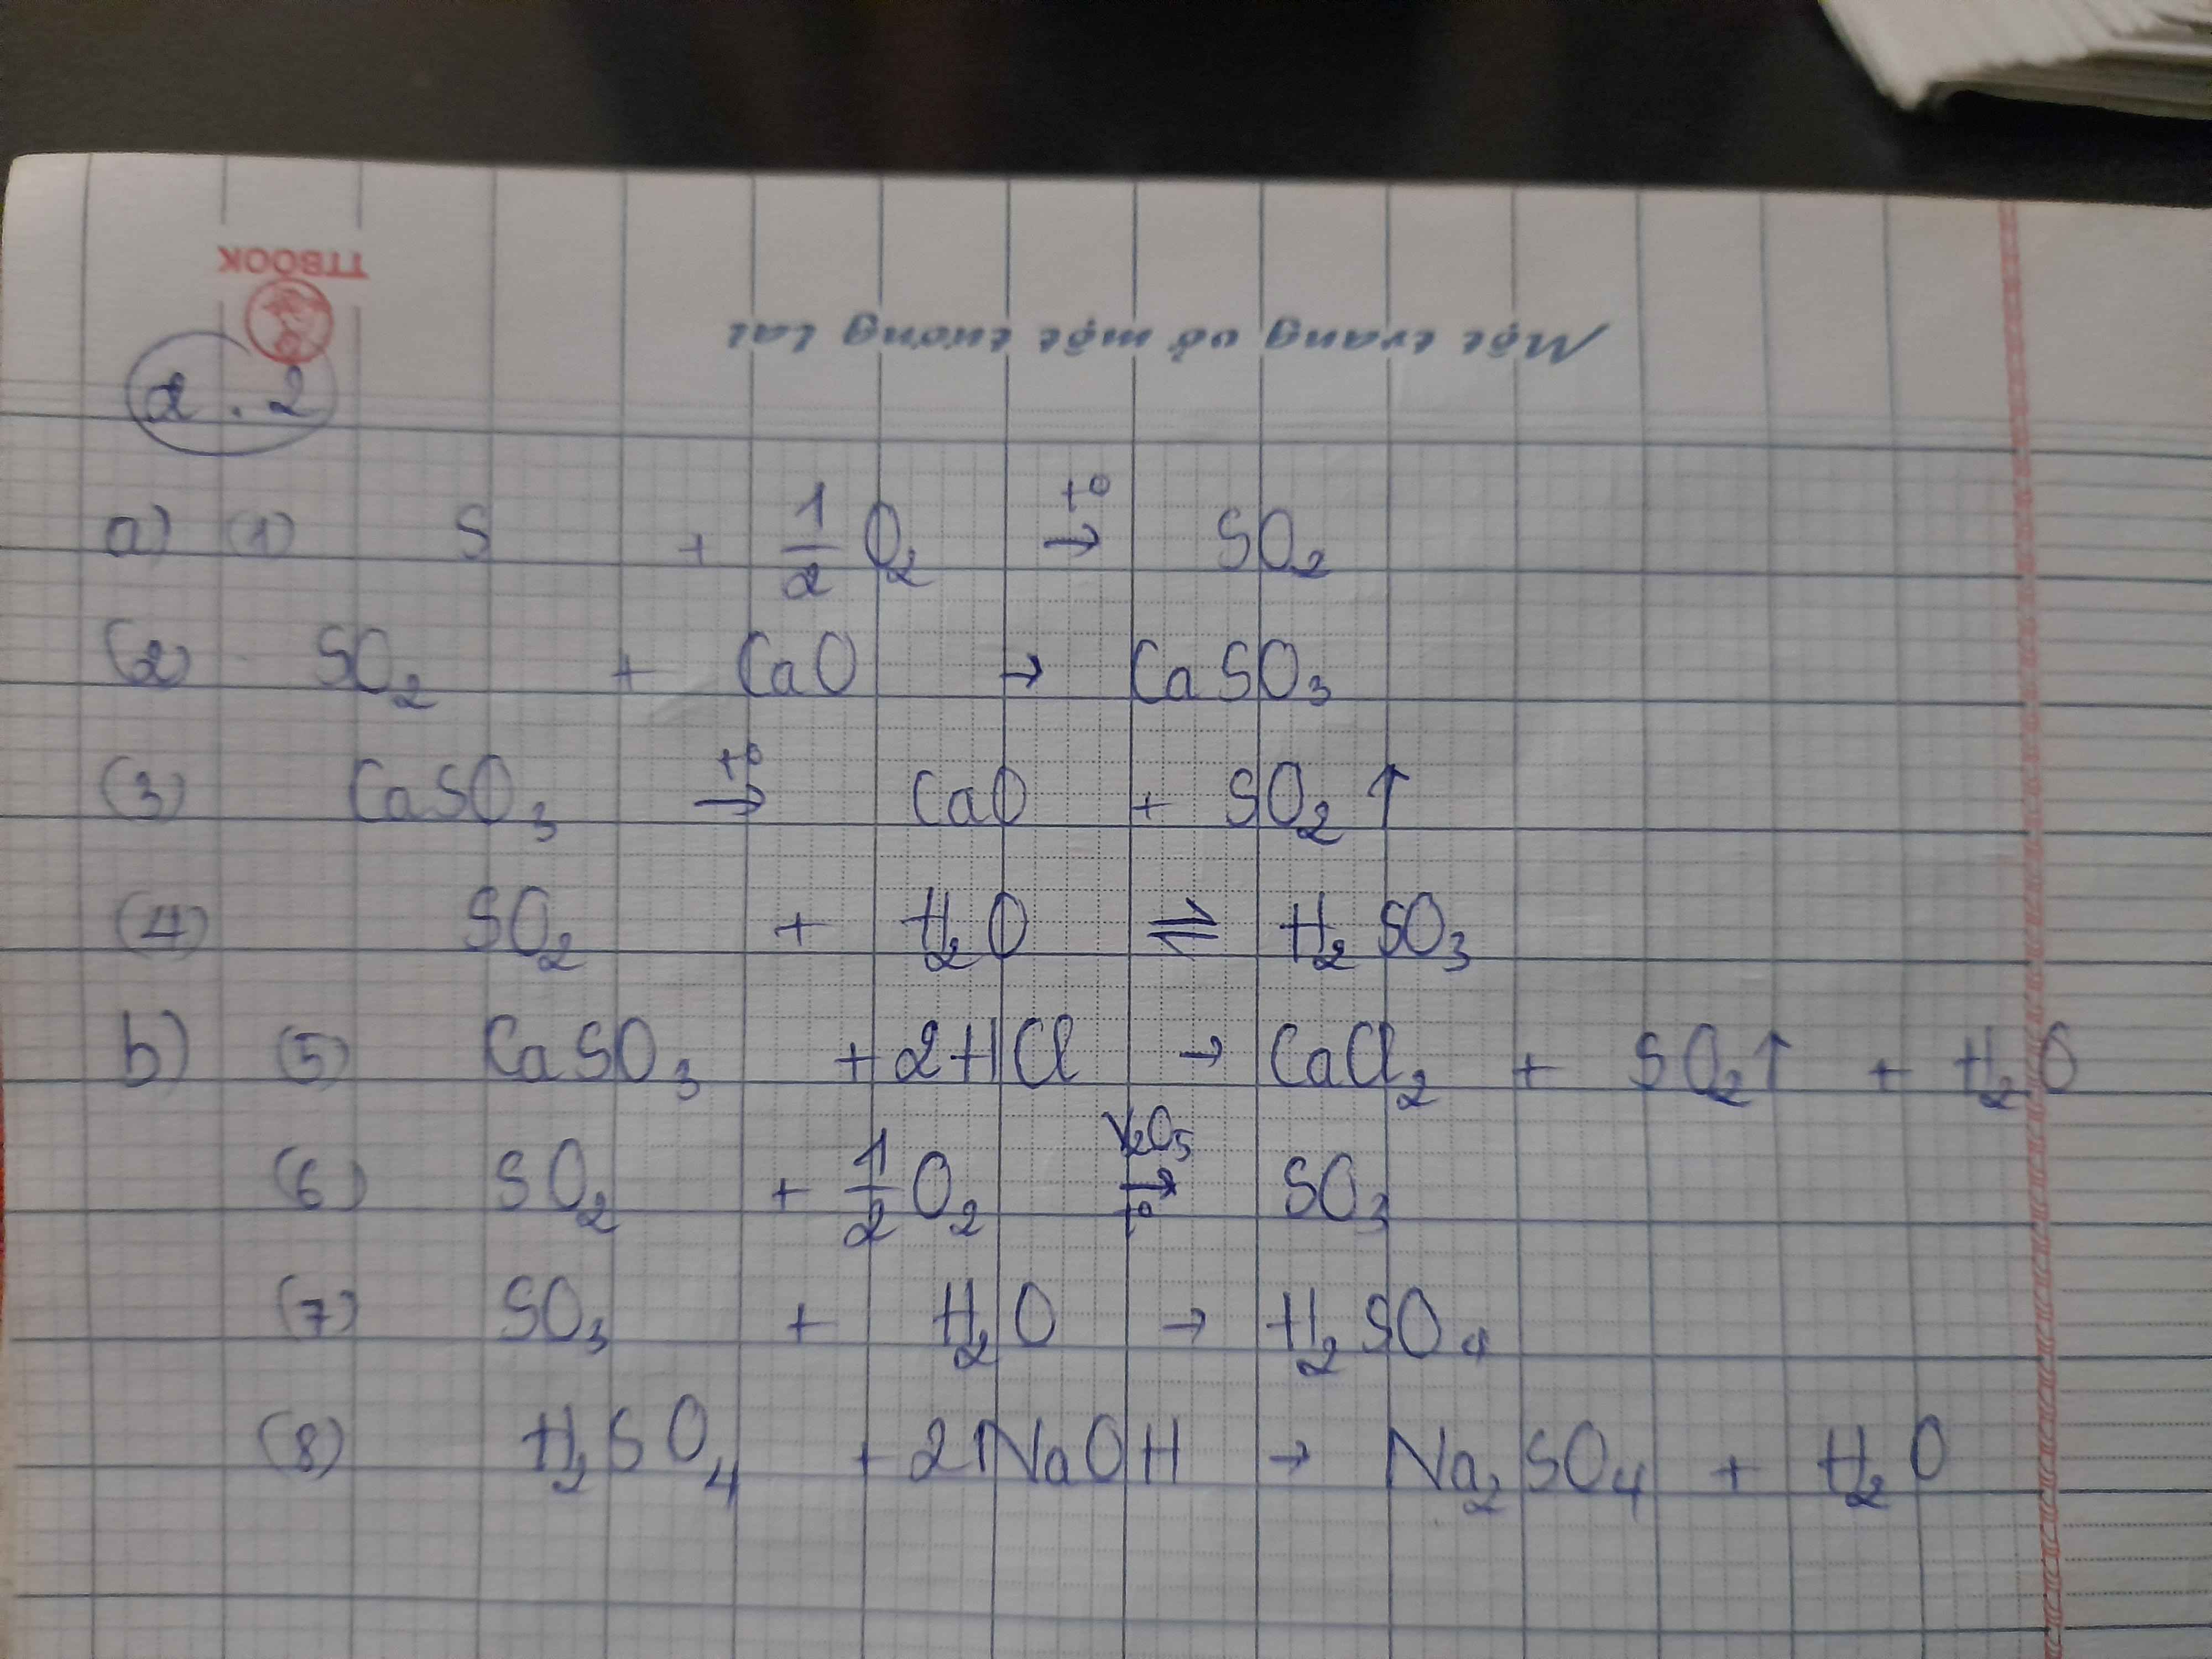 TTBOOK
Một trang vở một tương lai
2.2
a) (1) S + 1/2 O₂ →(t⁰) SO₂
(2) SO₂ + CaO → CaSO₃
(3) CaSO₃ →(t⁰) CaO + SO₂↑
(4) SO₂ + H₂O ⇌ H₂SO₃
b) (5) CaSO₃ + 2HCl → CaCl₂ + SO₂↑ + H₂O
(6) SO₂ + 1/2 O₂ →(V₂O₅, t⁰) SO₃
(7) SO₃ + H₂O → H₂SO₄
(8) H₂SO₄ + 2NaOH → Na₂SO₄ + H₂O